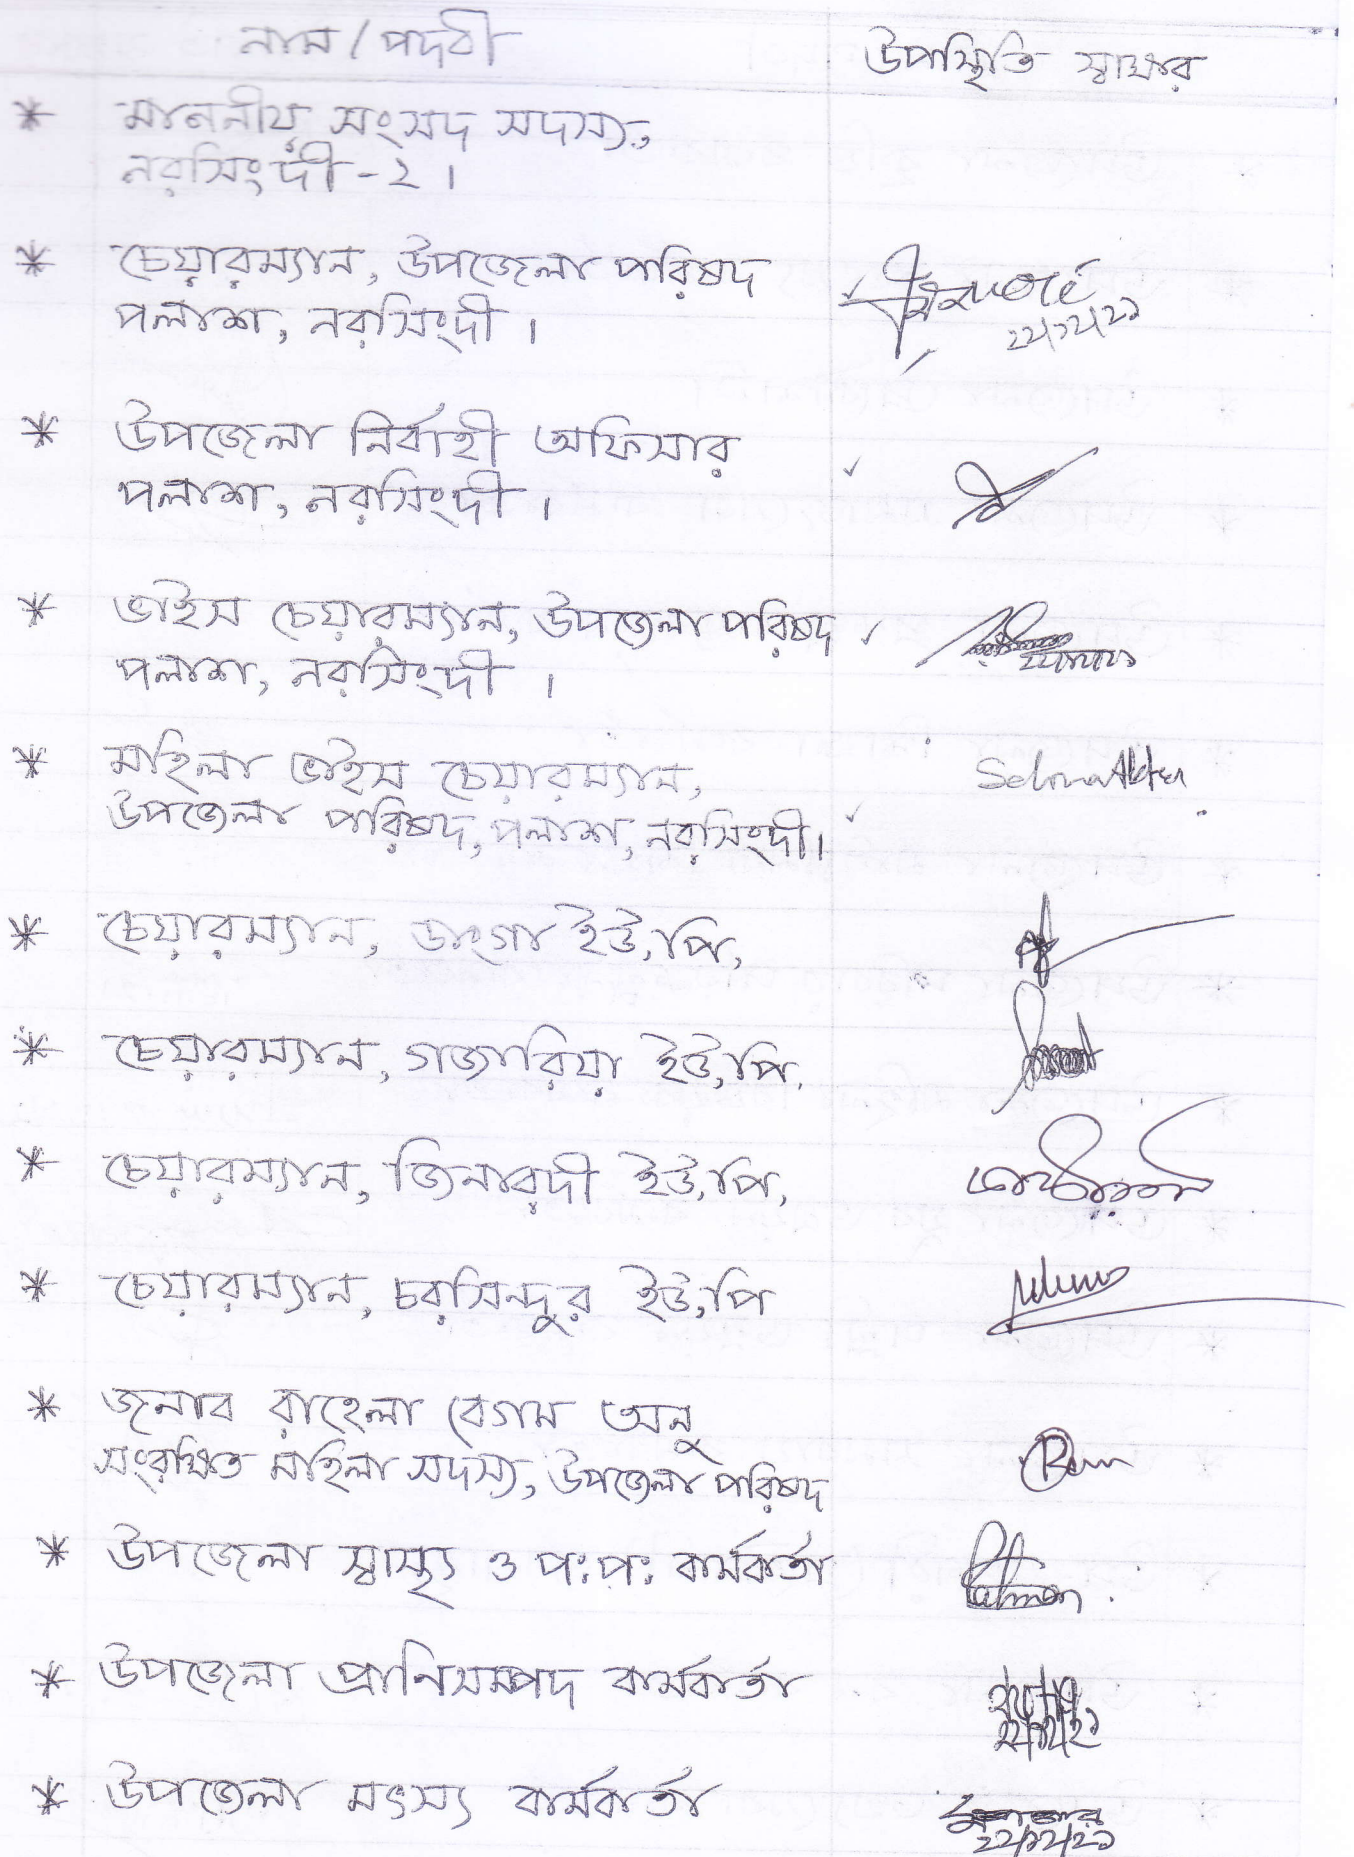 নাম / পদবী
উপস্থিতি স্বাক্ষর
* মাননীয় সংসদ সদস্য,
নরসিংদী-২।
* চেয়ারম্যান, উপজেলা পরিষদ
পলাশ, নরসিংদী।
২২/১২/২১
* উপজেলা নির্বাহী অফিসার
পলাশ, নরসিংদী।
* ভাইস চেয়ারম্যান, উপজেলা পরিষদ
পলাশ, নরসিংদী।
* মহিলা ভাইস চেয়ারম্যান,
উপজেলা পরিষদ, পলাশ, নরসিংদী।
Selma Akter
* চেয়ারম্যান, ডাংগা ইউ,পি,
* চেয়ারম্যান, গজারিয়া ইউ,পি,
* চেয়ারম্যান, জিনারদী ইউ,পি,
* চেয়ারম্যান, চরসিন্দুর ইউ,পি
* জনাব রাহেলা বেগম অনু
সংরক্ষিত মহিলা সদস্য, উপজেলা পরিষদ
* উপজেলা স্বাস্থ্য ও প:প: কর্মকর্তা
* উপজেলা প্রানিসম্পদ কর্মকর্তা
২২/১২/২১
* উপজেলা মৎস্য কর্মকর্তা
২২/১২/২১